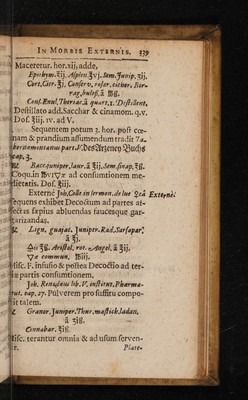 IN MORBIS EXTERNIS. 339
Maceretur. hor.xij, adde,
Epithym. ʒij. Alypiæ ʒvj. Sem. Junip. ʒij.
Cort. Citr. ℥j, Conserv, rosar. cichor. Bor-
rag, buloß, ā ℥iß.
Cons. Enul, Theriac. ā quart. 1. Destillent.
Destillato add. Sacchar & cinamom. q.v.
Dos. ℥iij. iv. ad V.
Sequentem potum 2. hor. post cœ-
nam & prandium assumendum tradit Ta-
bernæmontanus part. V. des Artzeney Buchs
cap. 3.
℞ Bacc. juniper, laur. ā ʒij, Sem. sinap, ʒß.
Coqu. in ad consumtionem me-
dietatis. Dos. ℥iij.
Externè Joh. Colle in sermon. de lue Externè.
sequens exhibet Decoctum ad partes af-
fectas sæpius abluendas faucesque gar-
garizandas.
℞ Lign. guajac. Juniper. Rad. Sarsapar.
ā ℥j.
Aristol. rot. Angel, ā ℥ij.
commun,
Misc. F. infusio & postea Decoctio ad ter-
tiæ partis consumtionem,
Joh. Renodæus lib. V. institut. Pharma-
ceut. cap. 27. Pulverem pro suffitu compo-
nit talem.
℞ Granor. Juniper. Thur. mastich. ladan,
ā ʒiß.
Cinnabar. ℥iß.
Misc. terantur omnia & ad usum serven-
tur. Plate-